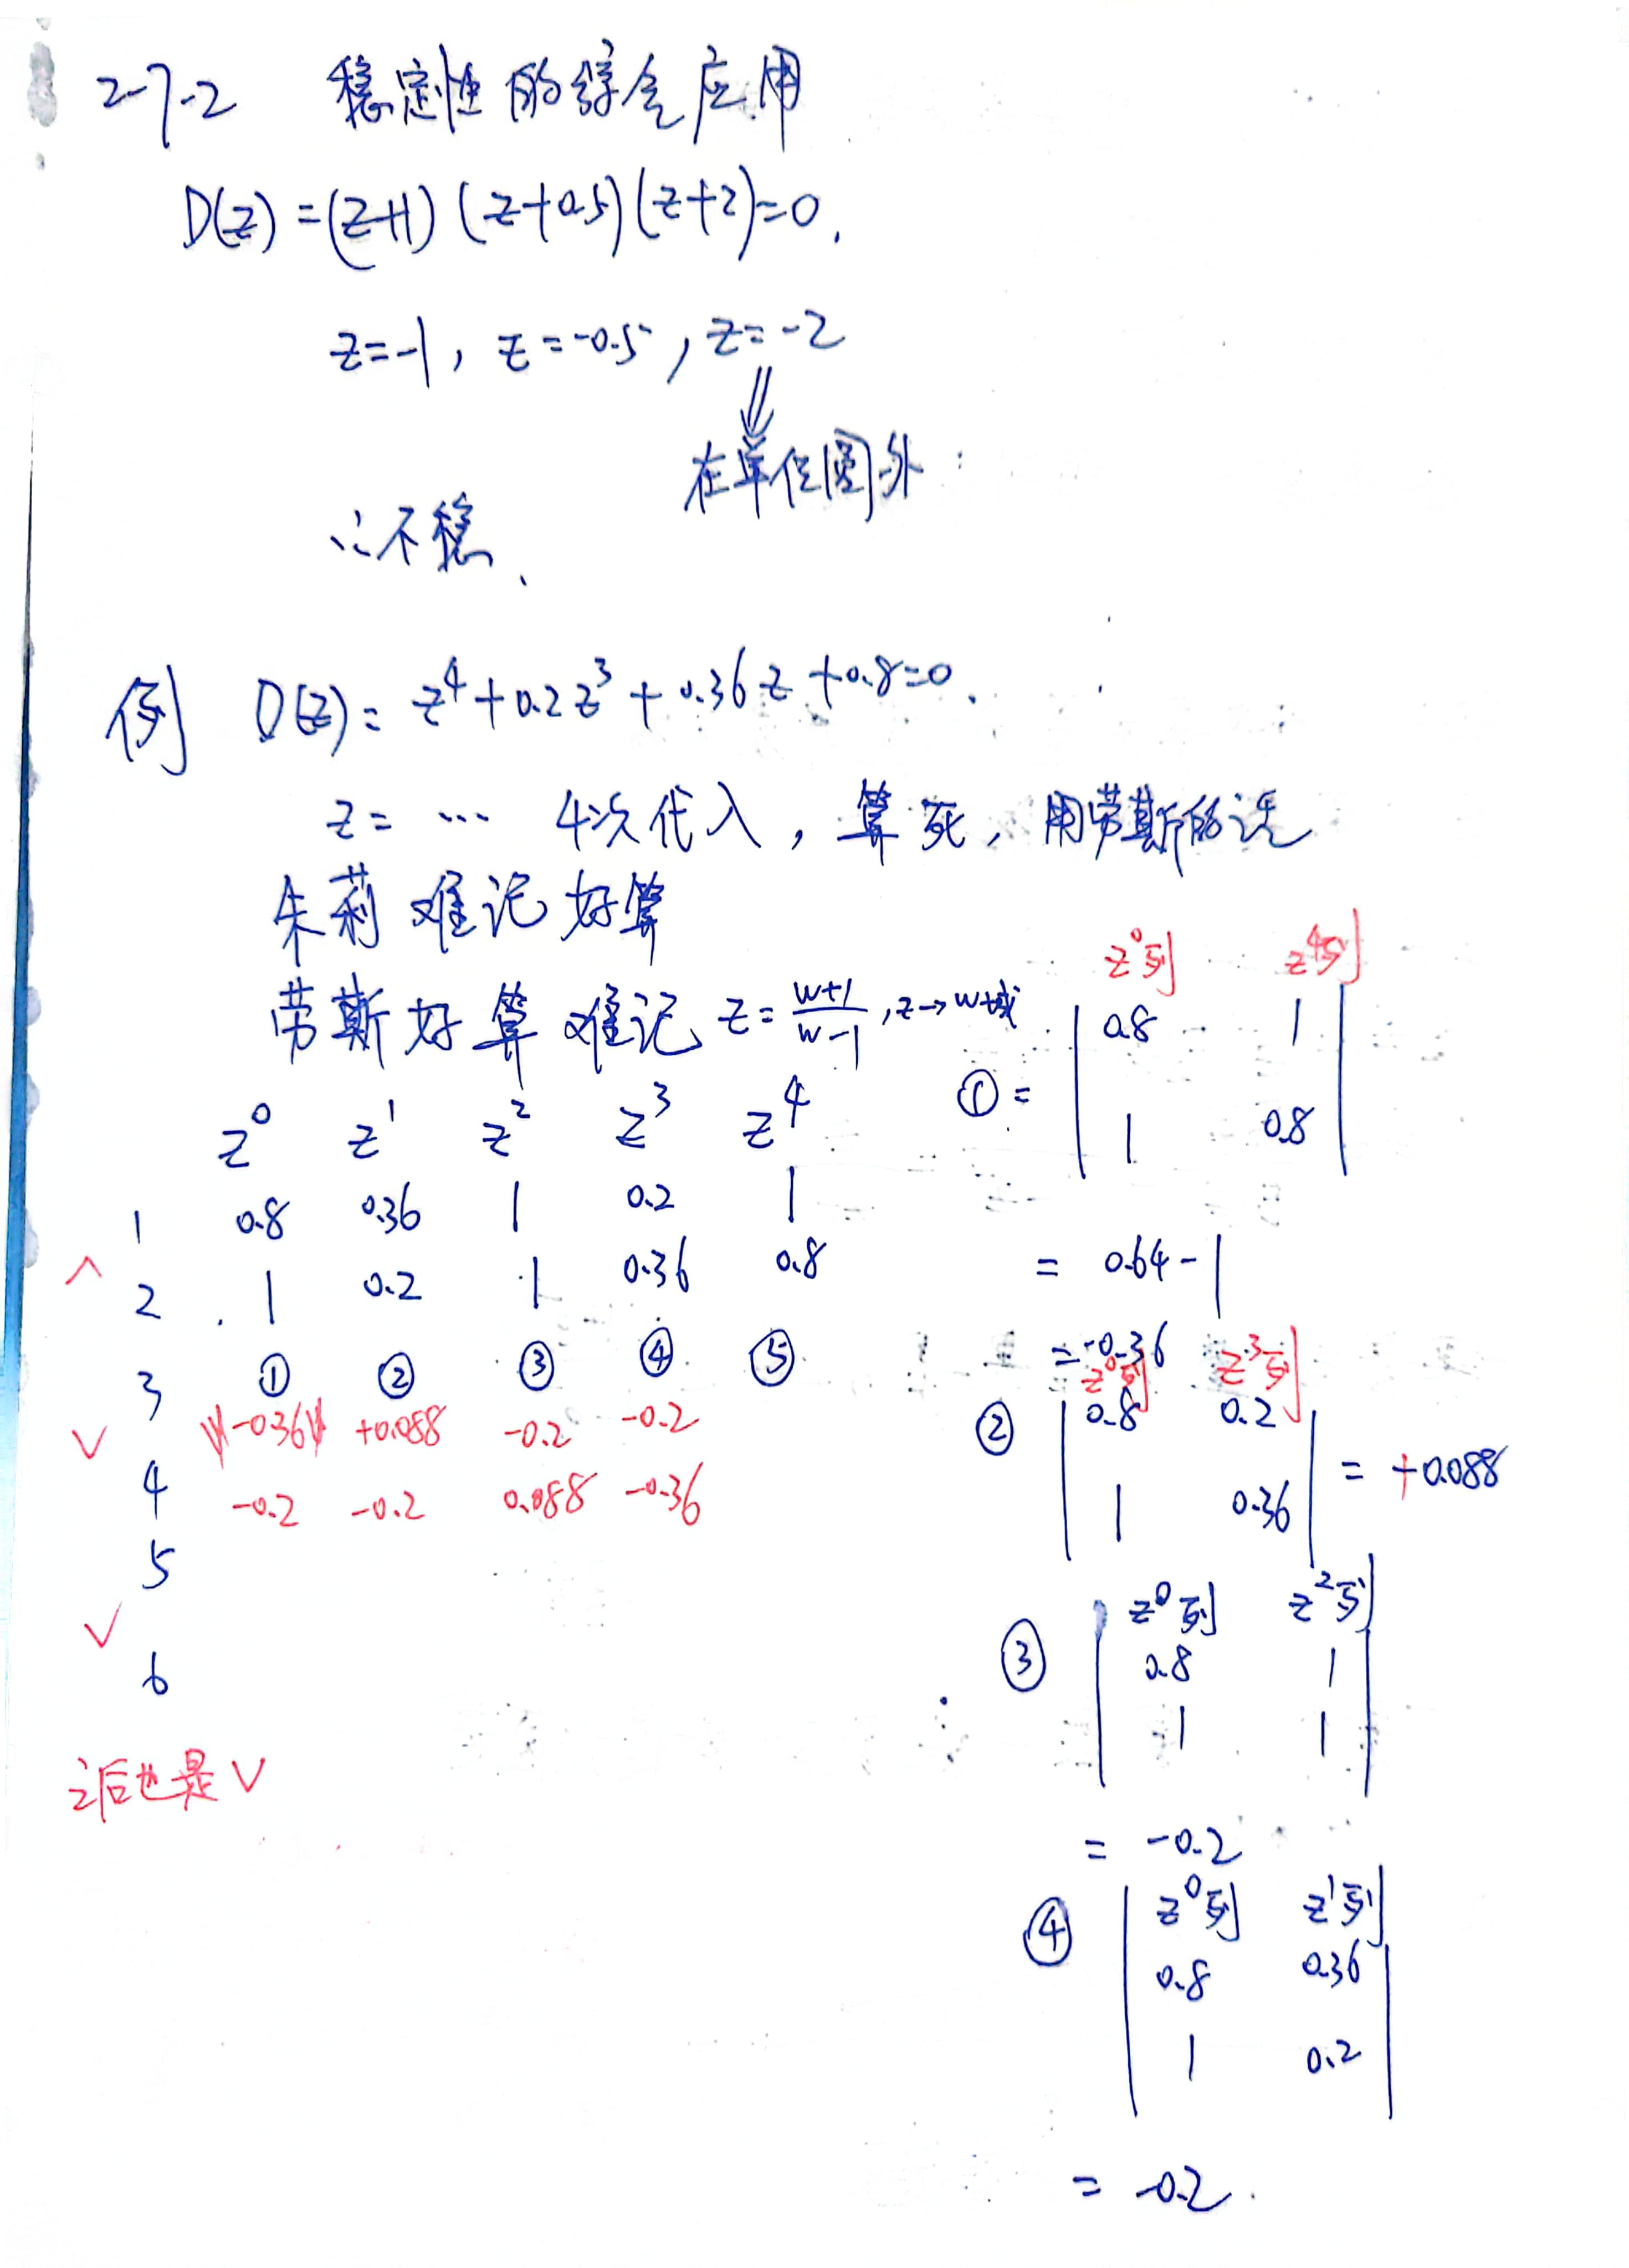 2-7-2 稳定性的综合应用
D(z)=(z+1)(z+0.5)(z+2)=0.
z=-1, z=-0.5, z=-2
⇓
在单位圆外
∴不稳、
例 D(z)= z⁴+0.2z³+0.36z+0.8=0.
z= … 4次代入，算死，用劳斯的话
朱莉 难记 好算
劳斯 好算 难记 z=\frac{w+1}{w-1}, z→w域
z⁰ z¹ z² z³ z⁴
1 0.8 0.36 1 0.2 1
∧
2 1 0.2 1 0.36 0.8
3 ① ② ③ ④ ⑤
-0.36 +0.088 -0.2 -0.2
∨
4 -0.2 -0.2 0.088 -0.36
5
∨
6
之后也是∨
z⁰列 z⁴列
① = | 0.8 1 |
| 1 0.8 |
= 0.64-1
=-0.36
z⁰列 z³列
② | 0.8 0.2 |
| 1 0.36 | = +0.088
z⁰列 z²列
③ | 0.8 1 |
| 1 1 |
= -0.2
z⁰列 z¹列
④ | 0.8 0.36 |
| 1 0.2 |
= -0.2.